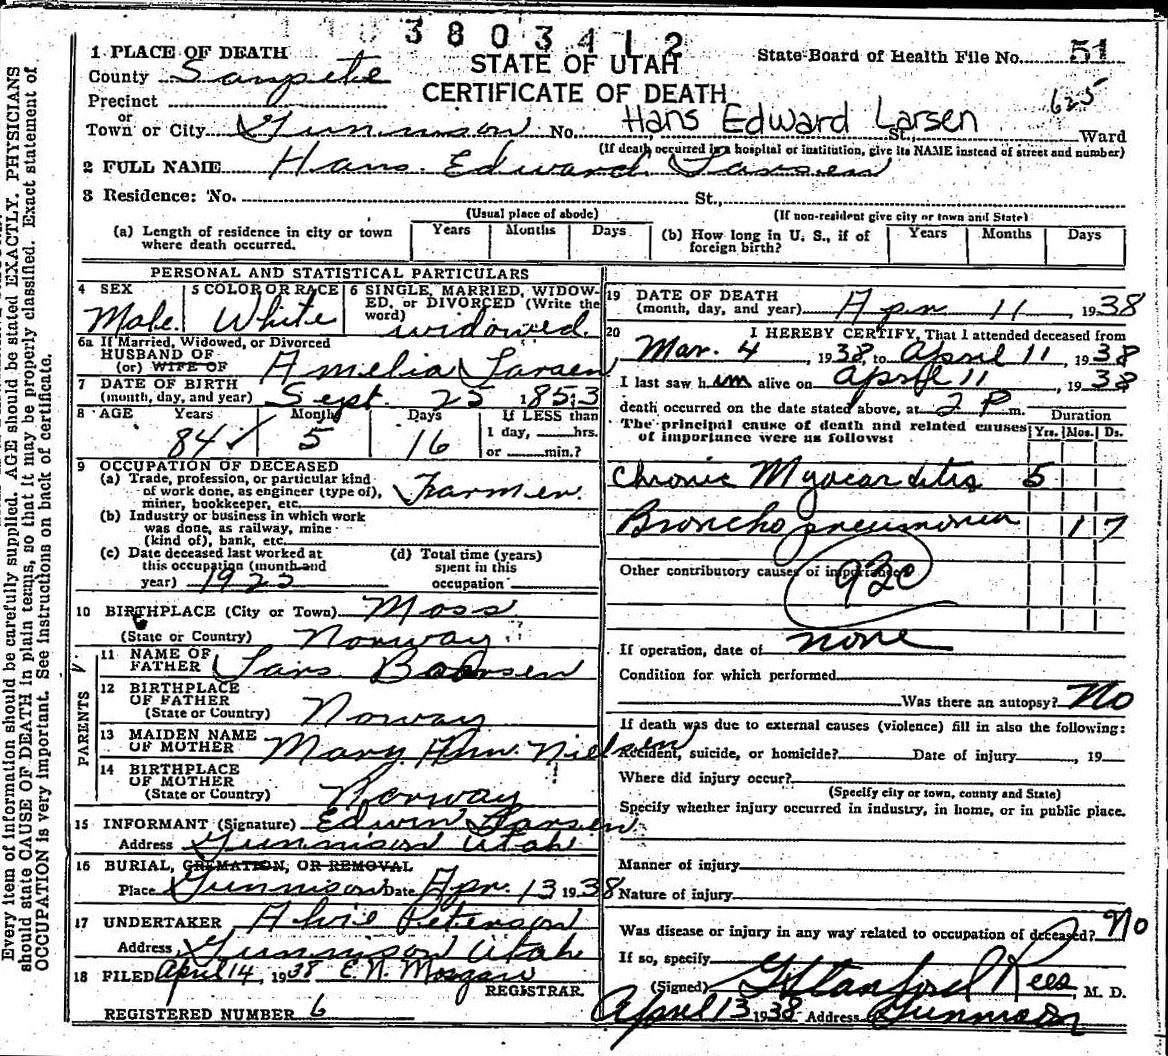 3803412
1 PLACE OF DEATH
STATE OF UTAH
State Board of Health File No. 51
County Sanpete
CERTIFICATE OF DEATH
625
Precinct
or
Town or City Gunnison No. Hans Edward Larsen St., Ward
(If death occurred in a hospital or institution, give its NAME instead of street and number)
2 FULL NAME Hans Edward Larsen
3 Residence: No. St.,
(Usual place of abode) (If non-resident give city or town and State)
(a) Length of residence in city or town where death occurred. Years Months Days (b) How long in U. S., if of foreign birth? Years Months Days
PERSONAL AND STATISTICAL PARTICULARS
4 SEX Male. 5 COLOR OR RACE White 6 SINGLE, MARRIED, WIDOWED, or DIVORCED (Write the word) widowed.
6a If Married, Widowed, or Divorced
HUSBAND OF
(or) WIFE OF Amelia Larsen
7 DATE OF BIRTH
(month, day, and year) Sept. 25 1853
8 AGE Years Months Days If LESS than
84 5 16 1 day, hrs.
or min.?
9 OCCUPATION OF DECEASED
(a) Trade, profession, or particular kind
of work done, as engineer (type of),
miner, bookkeeper, etc. Farmer.
(b) Industry or business in which work
was done, as railway, mine
(kind of), bank, etc.
(c) Date deceased last worked at
this occupation (month and
year)
(d) Total time (years)
spent in this
occupation
10 BIRTHPLACE (City or Town) Moss
(State or Country) Norway
PARENTS
11 NAME OF
FATHER Lars
12 BIRTHPLACE
OF FATHER
(State or Country) Norway
13 MAIDEN NAME
OF MOTHER Mary Ann Nielsen
14 BIRTHPLACE
OF MOTHER
(State or Country) Norway
15 INFORMANT (Signature) Edwin Larsen
Address Gunnison Utah
16 BURIAL, CREMATION, OR REMOVAL
Place Gunnison Date Apr. 13 1938
17 UNDERTAKER Alvie Peterson
Address Gunnison Utah
18 FILED April 14, 1938 E N. Morgan
REGISTRAR.
REGISTERED NUMBER 6
19 DATE OF DEATH
(month, day, and year) Apr 11, 1938
20 I HEREBY CERTIFY, That I attended deceased from
Mar. 4, 1938, to April 11, 1938
I last saw him alive on April 11, 1938
death occurred on the date stated above, at 2 P m.
Duration
The principal cause of death and related causes
of importance were as follows: Yrs. Mos. Ds.
Chronic Myocarditis 5
Broncho pneumonia 1 7
Other contributory causes of importance:
If operation, date of none
Condition for which performed
Was there an autopsy? No
If death was due to external causes (violence) fill in also the following:
Accident, suicide, or homicide? Date of injury , 19
Where did injury occur?
(Specify city or town, county and State)
Specify whether injury occurred in industry, in home, or in public place.
Manner of injury
Nature of injury
Was disease or injury in any way related to occupation of deceased? No
If so, specify
(Signed) Stanford Rees, M. D.
April 13 1938 Address Gunnison
Every item of information should be carefully supplied. AGE should be stated EXACTLY. PHYSICIANS
should state CAUSE OF DEATH in plain terms, so that it may be properly classified. Exact statement of
OCCUPATION is very important. See instructions on back of certificate.